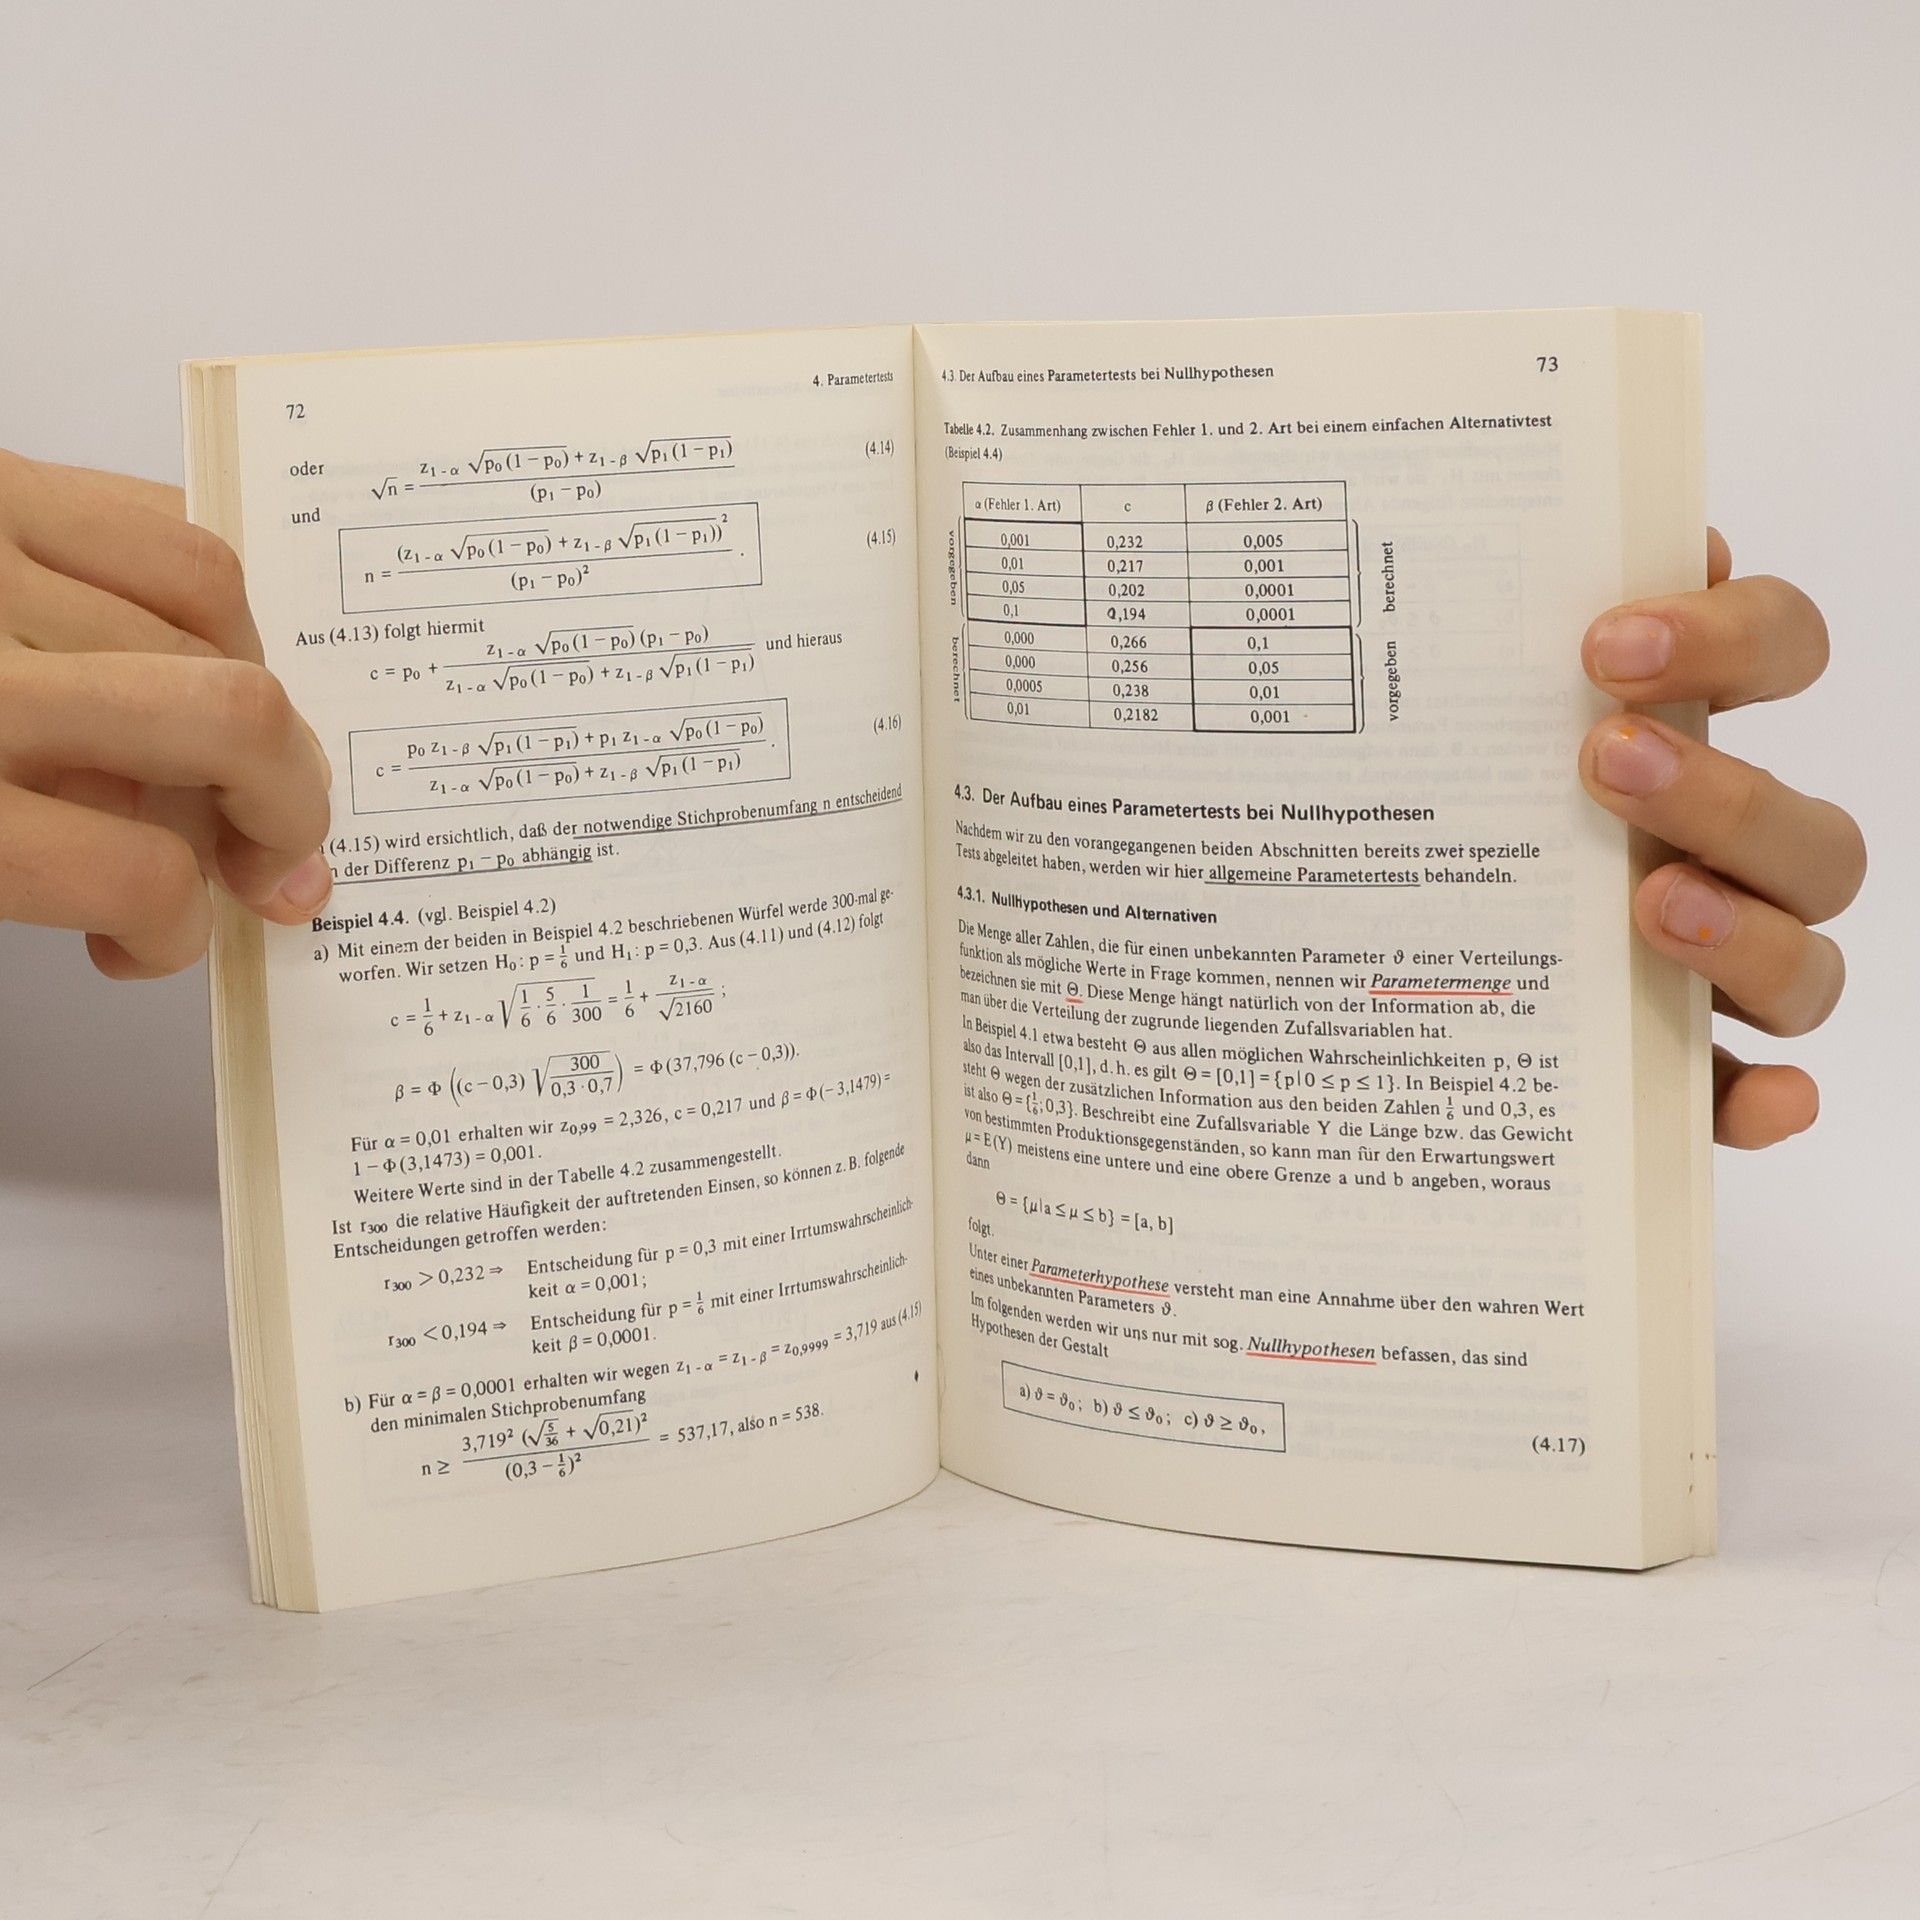 72
4. Parametertests
oder
√n = (z₁₋α √(p₀(1−p₀)) + z₁₋β √(p₁(1−p₁))) / (p₁ − p₀) (4.14)
und
n = (z₁₋α √(p₀(1−p₀)) + z₁₋β √(p₁(1−p₁)))² / (p₁ − p₀)² . (4.15)
Aus (4.13) folgt hiermit
c = p₀ + (z₁₋α √(p₀(1−p₀)) (p₁ − p₀)) / (z₁₋α √(p₀(1−p₀)) + z₁₋β √(p₁(1−p₁))) und hieraus
c = (p₀ z₁₋β √(p₁(1−p₁)) + p₁ z₁₋α √(p₀(1−p₀))) / (z₁₋α √(p₀(1−p₀)) + z₁₋β √(p₁(1−p₁))) . (4.16)
(4.15) wird ersichtlich, daß der notwendige Stichprobenumfang n entscheidend
der Differenz p₁ − p₀ abhängig ist.
Beispiel 4.4. (vgl. Beispiel 4.2)
a) Mit einem der beiden in Beispiel 4.2 beschriebenen Würfel werde 300-mal ge-
worfen. Wir setzen H₀: p = 1/6 und H₁: p = 0,3. Aus (4.11) und (4.12) folgt
c = 1/6 + z₁₋α √(1/6 · 5/6 · 1/300) = 1/6 + z₁₋α/√2160 ;
β = Φ((c − 0,3) √(300/(0,3 · 0,7))) = Φ(37,796 (c − 0,3)).
Für α = 0,01 erhalten wir z₀,₉₉ = 2,326, c = 0,217 und β = Φ(− 3,1479) =
1 − Φ(3,1473) = 0,001.
Weitere Werte sind in der Tabelle 4.2 zusammengestellt.
Ist r₃₀₀ die relative Häufigkeit der auftretenden Einsen, so können z. B. folgende
Entscheidungen getroffen werden:
r₃₀₀ > 0,232 ⇒ Entscheidung für p = 0,3 mit einer Irrtumswahrscheinlich-
keit α = 0,001;
r₃₀₀ < 0,194 ⇒ Entscheidung für p = 1/6 mit einer Irrtumswahrscheinlich-
keit β = 0,0001.
b) Für α = β = 0,0001 erhalten wir wegen z₁₋α = z₁₋β = z₀,₉₉₉₉ = 3,719 aus (4.15)
den minimalen Stichprobenumfang
n ≥ 3,719² (√(5/36) + √0,21)² / (0,3 − 1/6)² = 537,17, also n = 538.
4.3. Der Aufbau eines Parametertests bei Nullhypothesen
73
Tabelle 4.2. Zusammenhang zwischen Fehler 1. und 2. Art bei einem einfachen Alternativtest
(Beispiel 4.4)
α (Fehler 1. Art) c β (Fehler 2. Art)
0,001 0,232 0,005
0,01 0,217 0,001
0,05 0,202 0,0001
0,1 0,194 0,0001
0,000 0,266 0,1
0,000 0,256 0,05
0,0005 0,238 0,01
0,01 0,2182 0,001
vorgegeben
berechnet
berechnet
vorgegeben
4.3. Der Aufbau eines Parametertests bei Nullhypothesen
Nachdem wir zu den vorangegangenen beiden Abschnitten bereits zwei spezielle
Tests abgeleitet haben, werden wir hier allgemeine Parametertests behandeln.
4.3.1. Nullhypothesen und Alternativen
Die Menge aller Zahlen, die für einen unbekannten Parameter ϑ einer Verteilungs-
funktion als mögliche Werte in Frage kommen, nennen wir Parametermenge und
bezeichnen sie mit Θ. Diese Menge hängt natürlich von der Information ab, die
man über die Verteilung der zugrunde liegenden Zufallsvariablen hat.
In Beispiel 4.1 etwa besteht Θ aus allen möglichen Wahrscheinlichkeiten p, Θ ist
also das Intervall [0,1], d. h. es gilt Θ = [0,1] = {p|0 ≤ p ≤ 1}. In Beispiel 4.2 be-
steht Θ wegen der zusätzlichen Information aus den beiden Zahlen 1/6 und 0,3, es
ist also Θ = {1/6; 0,3}. Beschreibt eine Zufallsvariable Y die Länge bzw. das Gewicht
von bestimmten Produktionsgegenständen, so kann man für den Erwartungswert
μ = E(Y) meistens eine untere und eine obere Grenze a und b angeben, woraus
dann
Θ = {μ|a ≤ μ ≤ b} = [a, b]
folgt.
Unter einer Parameterhypothese versteht man eine Annahme über den wahren Wert
eines unbekannten Parameters ϑ.
Im folgenden werden wir uns nur mit sog. Nullhypothesen befassen, das sind
Hypothesen der Gestalt
a) ϑ = ϑ₀; b) ϑ ≤ ϑ₀; c) ϑ ≥ ϑ₀,
(4.17)